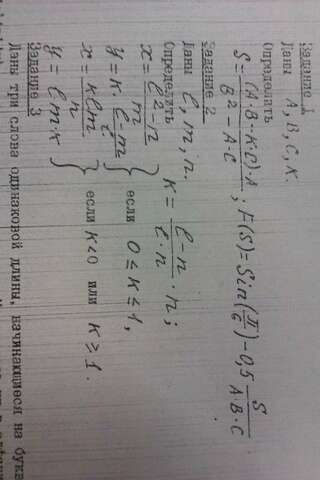 Задание 1
Даны A, B, C, K.
Определить
S = (A·B-K·C)·A / B²-A·C ; F(S) = Sin(π/6) - 0,5 S / A·B·C
Задание 2
Даны l, m, n.
Определить K = l-n / l·n · n;
x = m / l²-n
y = K · l-m / l } если 0 ≤ K ≤ 1,
x = Klm / n
y = lm·x } если K<0 или K ≥ 1.
Задание 3
Даны три слова одинаковой длины, начинающиеся на